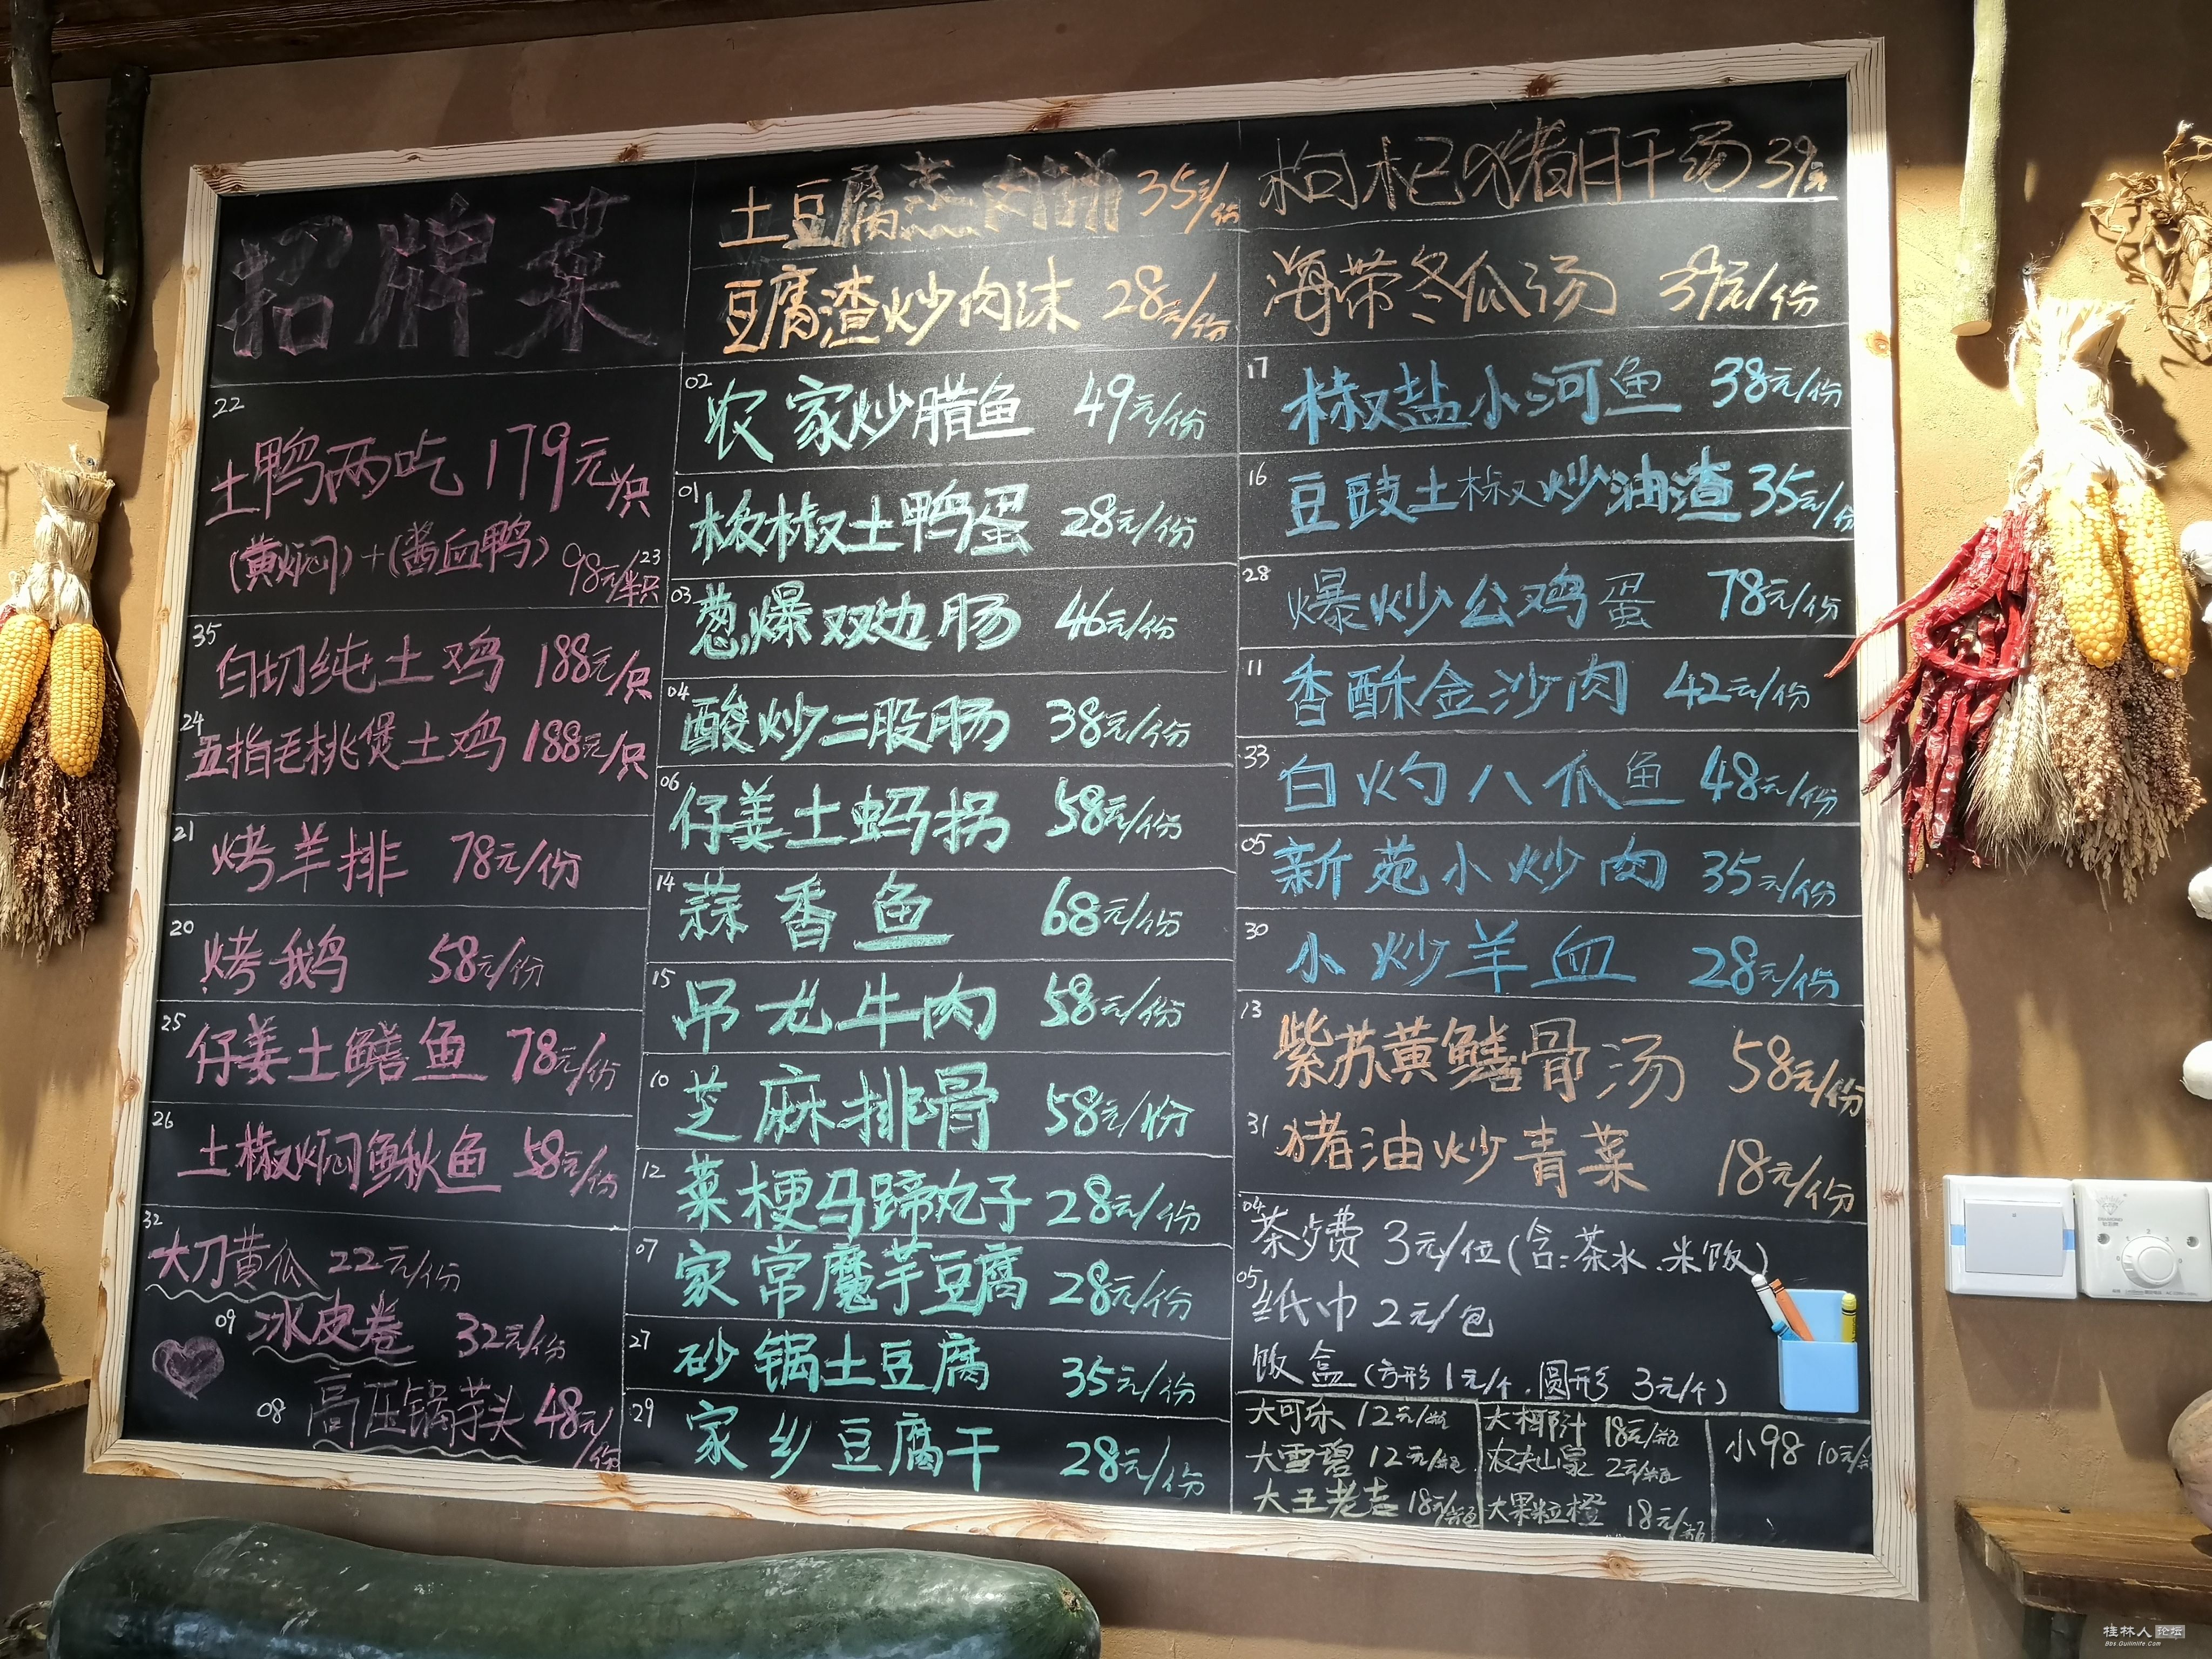 招牌菜
22
土鸭两吃 179元/只
(黄焖)+(酱血鸭) 98元/半只 23
35
白切纯土鸡 188元/只
24
五指毛桃煲土鸡 188元/只
21
烤羊排 78元/份
20
烤鹅 58元/份
25
仔姜土鳝鱼 78元/份
26
土椒焖鳅鱼 58元/份
32
大刀黄瓜 22元/份
09 冰皮卷 32元/份
08 高压锅芋头 48元/份
土豆腐蒸肉饼 35元/份
豆腐渣炒肉沫 28元/份
02
农家炒腊鱼 49元/份
01
椒土鸭蛋 28元/份
03
葱爆双边肠 46元/份
04
酸炒二股肠 38元/份
06
仔姜土蚂拐 58元/份
14
蒜香鱼 68元/份
15
吊龙牛肉 58元/份
10
芝麻排骨 58元/份
12
菜梗马蹄丸子 28元/份
07
家常魔芋豆腐 28元/份
27
砂锅土豆腐 35元/份
29
家乡豆腐干 28元/份
枸杞猪肝汤 39
海带冬瓜汤 39元/份
17
椒盐小河鱼 38元/份
16
豆豉土椒炒油渣 35元/份
28
爆炒公鸡蛋 78元/份
11
香酥金沙肉 42元/份
33
白灼八爪鱼 48元/份
05
新苑小炒肉 35元/份
30
小炒羊血 28元/份
13
紫苏黄鳝骨汤 58元/份
31
猪油炒青菜 18元/份
04
茶位费 3元/位(含:茶水.米饭)
05
纸巾 2元/包
饭盒(方形1元/个.圆形 3元/个)
大可乐 12元/瓶
大雪碧 12元/瓶
大王老吉 18元/瓶
大椰汁 18元/瓶
农夫山泉 2元/瓶
大果粒橙 18元/瓶
小98 10元/
桂林人论坛
Bbs.Guilinlife.Com